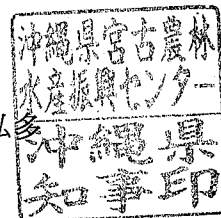 沖縄県宮古農林
水産振興センター
沖縄県
知事印
多